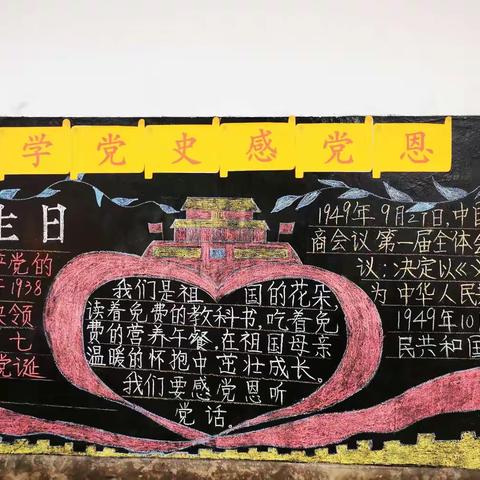 学党史感党恩
生日
产党的
1938
央领
七
党诞
我们是祖国的花朵,
读着免费的教科书,吃着免
费的营养午餐,在祖国母亲
温暖的怀抱中茁壮成长。
我们要感党恩听
党话。
1949年9月27日,中国
商会议第一届全体会
议:决定以《义
为中华人民
1949年10
民共和国